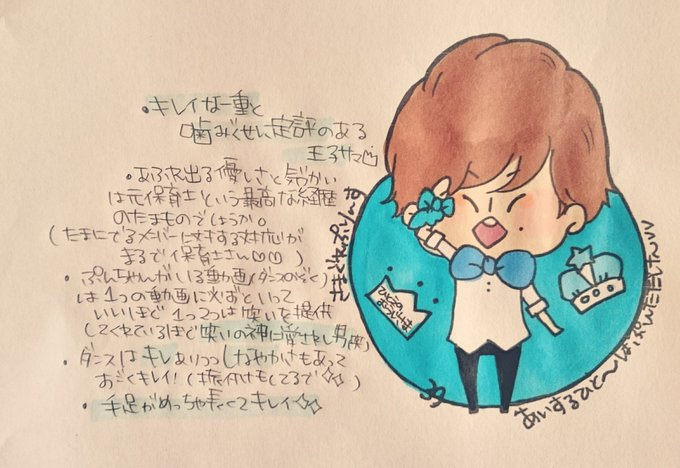 ・キレイな一重と
噛みぐせに定評のある
王子サマ♡
・あふれ出る優しさと気づかい
は元保育士という最高な経歴
のたまものでしょうか。
(たまにでるメンバーに対する対応が
まるで保育士さん♡♡)
・ぷんちゃんがいる動画(ダンスのぞく)
は1つの動画に必ずといって
いいほど1つ2つは笑いを提供
してくれているほど笑いの神に愛されし男(爆)
・ダンスはキレありつつしなやかさもあって
おどりキレイ!(振付けもしてるで☆☆)
・手足がめっちゃ長くてキレイ☆☆
きまぐれぷりんす
ひとえの
おうじさま
あいするひと〜はぷんただしさん